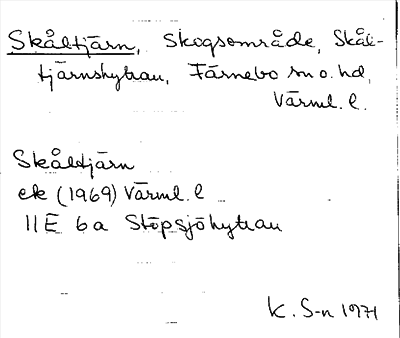 Skåltjärn, Skogsområde, Skål-
tjärnshyttan, Färnebo sn o. hd,
Värml. l.
Skåltjärn
ek (1969) Värml. l
11E 6a Stöpsjöhyttan
K. S-n 1971